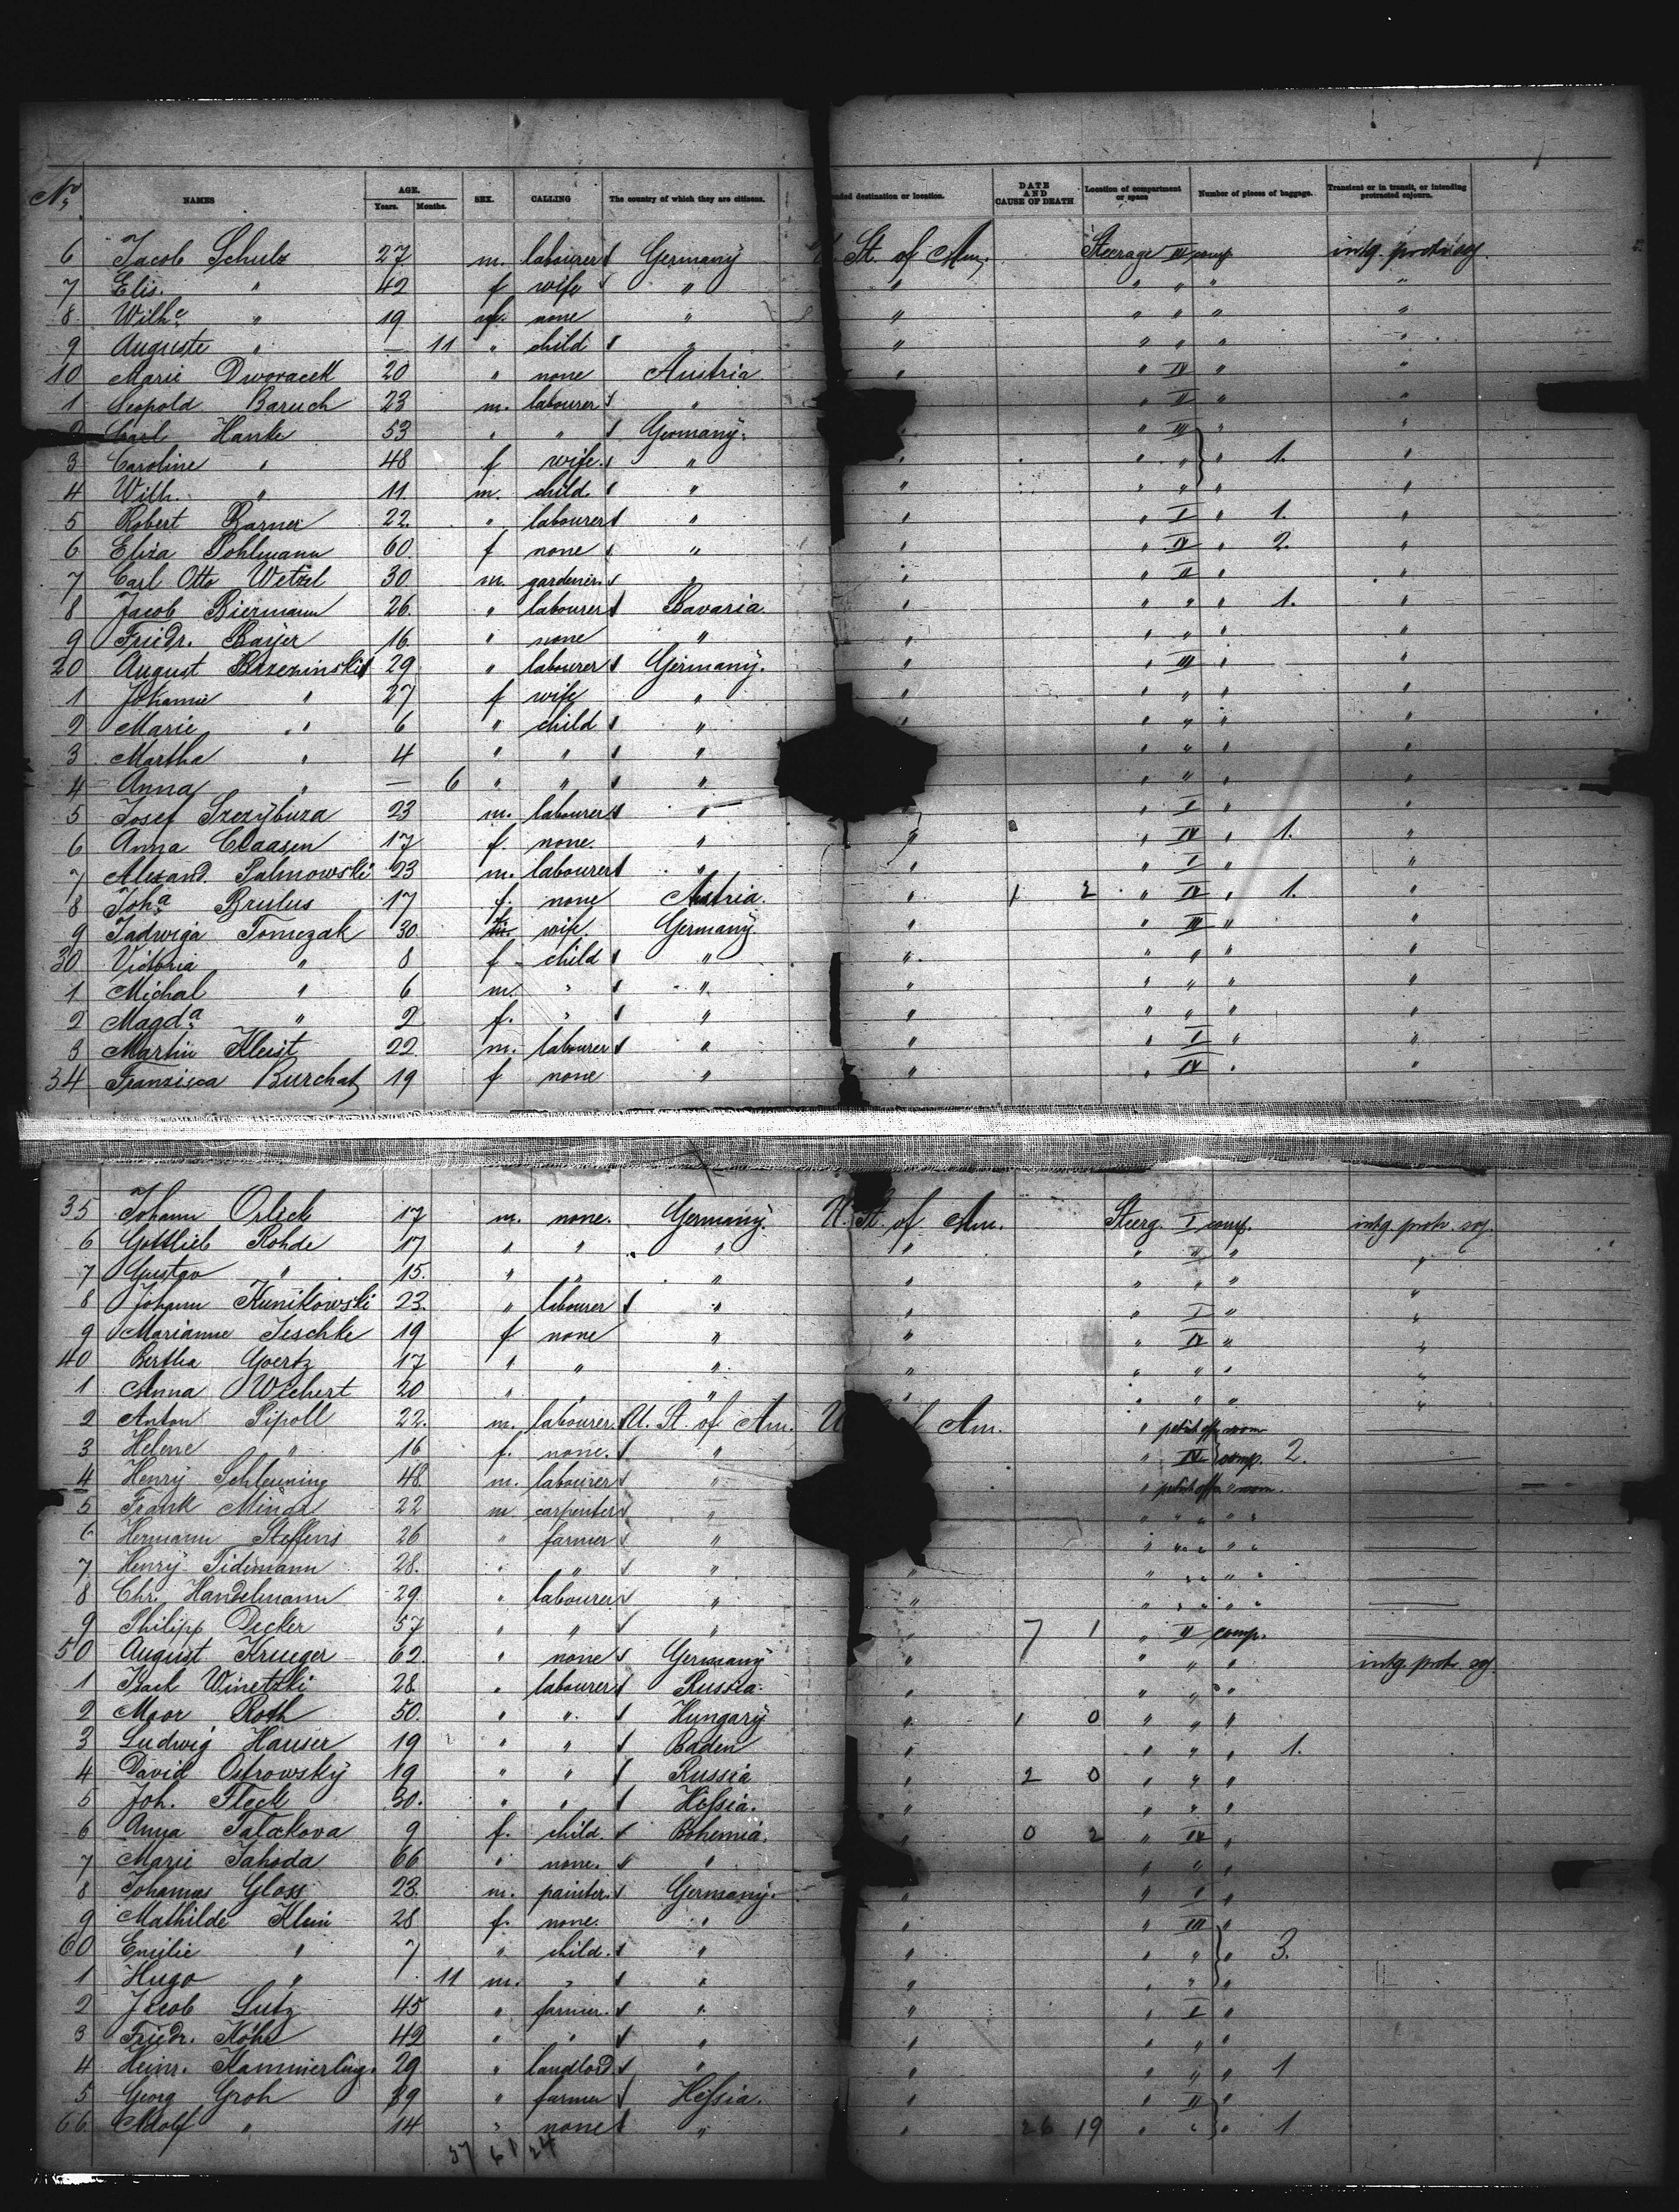 No. NAMES AGE. Years. Months. SEX. CALLING The country of which they are citizens. nded destination or location. DATE AND CAUSE OF DEATH Location of compartment or space Number of pieces of baggage. Transient or in transit, or intending protracted sojourn.
6 Jacob Schulz 27 m. labourer Germany St. of Am. Steerage comp. intg.
7 Elis. " 42 f wife " " " " " "
8 Wilhe " 19 f. none " " " " " "
9 Auguste " — 11 " child " " " " " "
10 Marie Dworacek 20 " none Austria " " IV " "
1 Leopold Baruch 23 m. labourer " " II " "
Carl Hanke 53 " " Germany. " " III " "
3 Caroline " 48 f wife. " " " " " 1. "
4 Wilh. " 11. m. child. " " " " " "
5 Robert 22. " labourer " " " I " 1. "
6 Eliza Pohlmann 60. f none " " " IV " 2. "
7 Carl Otto Wetzel 30. m. gardener. " " " II " "
8 Jacob Biermann 26. " labourer Bavaria. " " " " 1. "
9 Friedr. Bayer 16. " none " " " " " "
20 August Brzezinski 29. " labourer Germany. " " III " "
1 Johanne " 27 f wife " " " " "
2 Marie " 6 " child " " " " " "
3 Martha " 4 " " " " " " "
4 Anna " — 6 " " " " " " "
5 Josef 23 m. labourer " " " I " "
6 Anna Claasen 17 f. none. " " " IV " 1. "
7 Alexand. Palmowski 23 m. labourer " " " I " "
8 Joha. Brulus 17 f. none Austria. " 1 2 " IV " 1. "
9 Jadwiga Tomczak 30. f. wife. Germany " " III " "
30 Victoria " 8 f child " " " " " "
1 Michal " 6 m. " " " " " " "
2 Magda. " 2 f. " " " " " " "
3 Martin Kleist 22. m. labourer " " " I " "
34 Franzisca 19 f none " " " IV " "
35 Johann Orlick 17 m. none. Germany. U. St. of Am. Steerg. I comp. intg. protr. soj.
6 Gottlieb Rohde 17 " " " " " II " "
7 Gustav " 15. " " " " " " " "
8 Johann Kunikowski 23. " labourer " " " I " "
9 Marianne Jeschke 19 f none " " " IV " "
40 Bertha Goertz 17 " " " " " " " "
1 Anna Wiehert 20 " " " " " " " "
2 Anton Pipoll 22. m. labourer. U. St. of Am. U Am. " room
3 Helene " 16 f. none. " " IV comp. 2.
4 Henry Schleuning 48. m. labourer " " room.
5 Frank 22 m carpenter " " " " "
6 Hermann Steffens 26 " farmer " " " " "
7 Henry Tidemann 28. " " " " " " " "
8 Chr. Handelmann 29. " labourer " " " " " "
9 Philipp Decker 57 " " " " 7 1 " II comp.
50 August Krueger 62. " none Germany " " " " intg. protr. soj.
1 Winetzki 28. " labourer Russia. " " " "
2 Moor Roth 50. " " Hungary " 1 0 " " "
3 Ludwig Hauser 19 " " Baden " " " " 1.
4 David Ostrowsky 19 " " Russia " 2 0 " " "
5 Joh. Fleck 30. " " Hessia. " " " "
6 Anna 9 f. child. Bohemia. " 0 2 " IV "
7 Marie Jahoda 66 " none. " " " "
8 Johannes Gloss 23. m. painter. Germany. " " I "
9 Mathilde Klein 28 f. none. " " " III "
60 Emilie " 7 " child. " " " " " 3.
1 Hugo " 11 m. " " " " " "
2 Jacob Lutz 45 " farmer. " " " I "
3 Friedr. 42 " " " " " " "
4 Heinr. Kammerling. 29 " landlord " " " " " 1
5 Georg Groh 39 " farmer Hessia. " " II "
66. Adolf " 14 " none " " 26 19 " " " 1
37 61 24